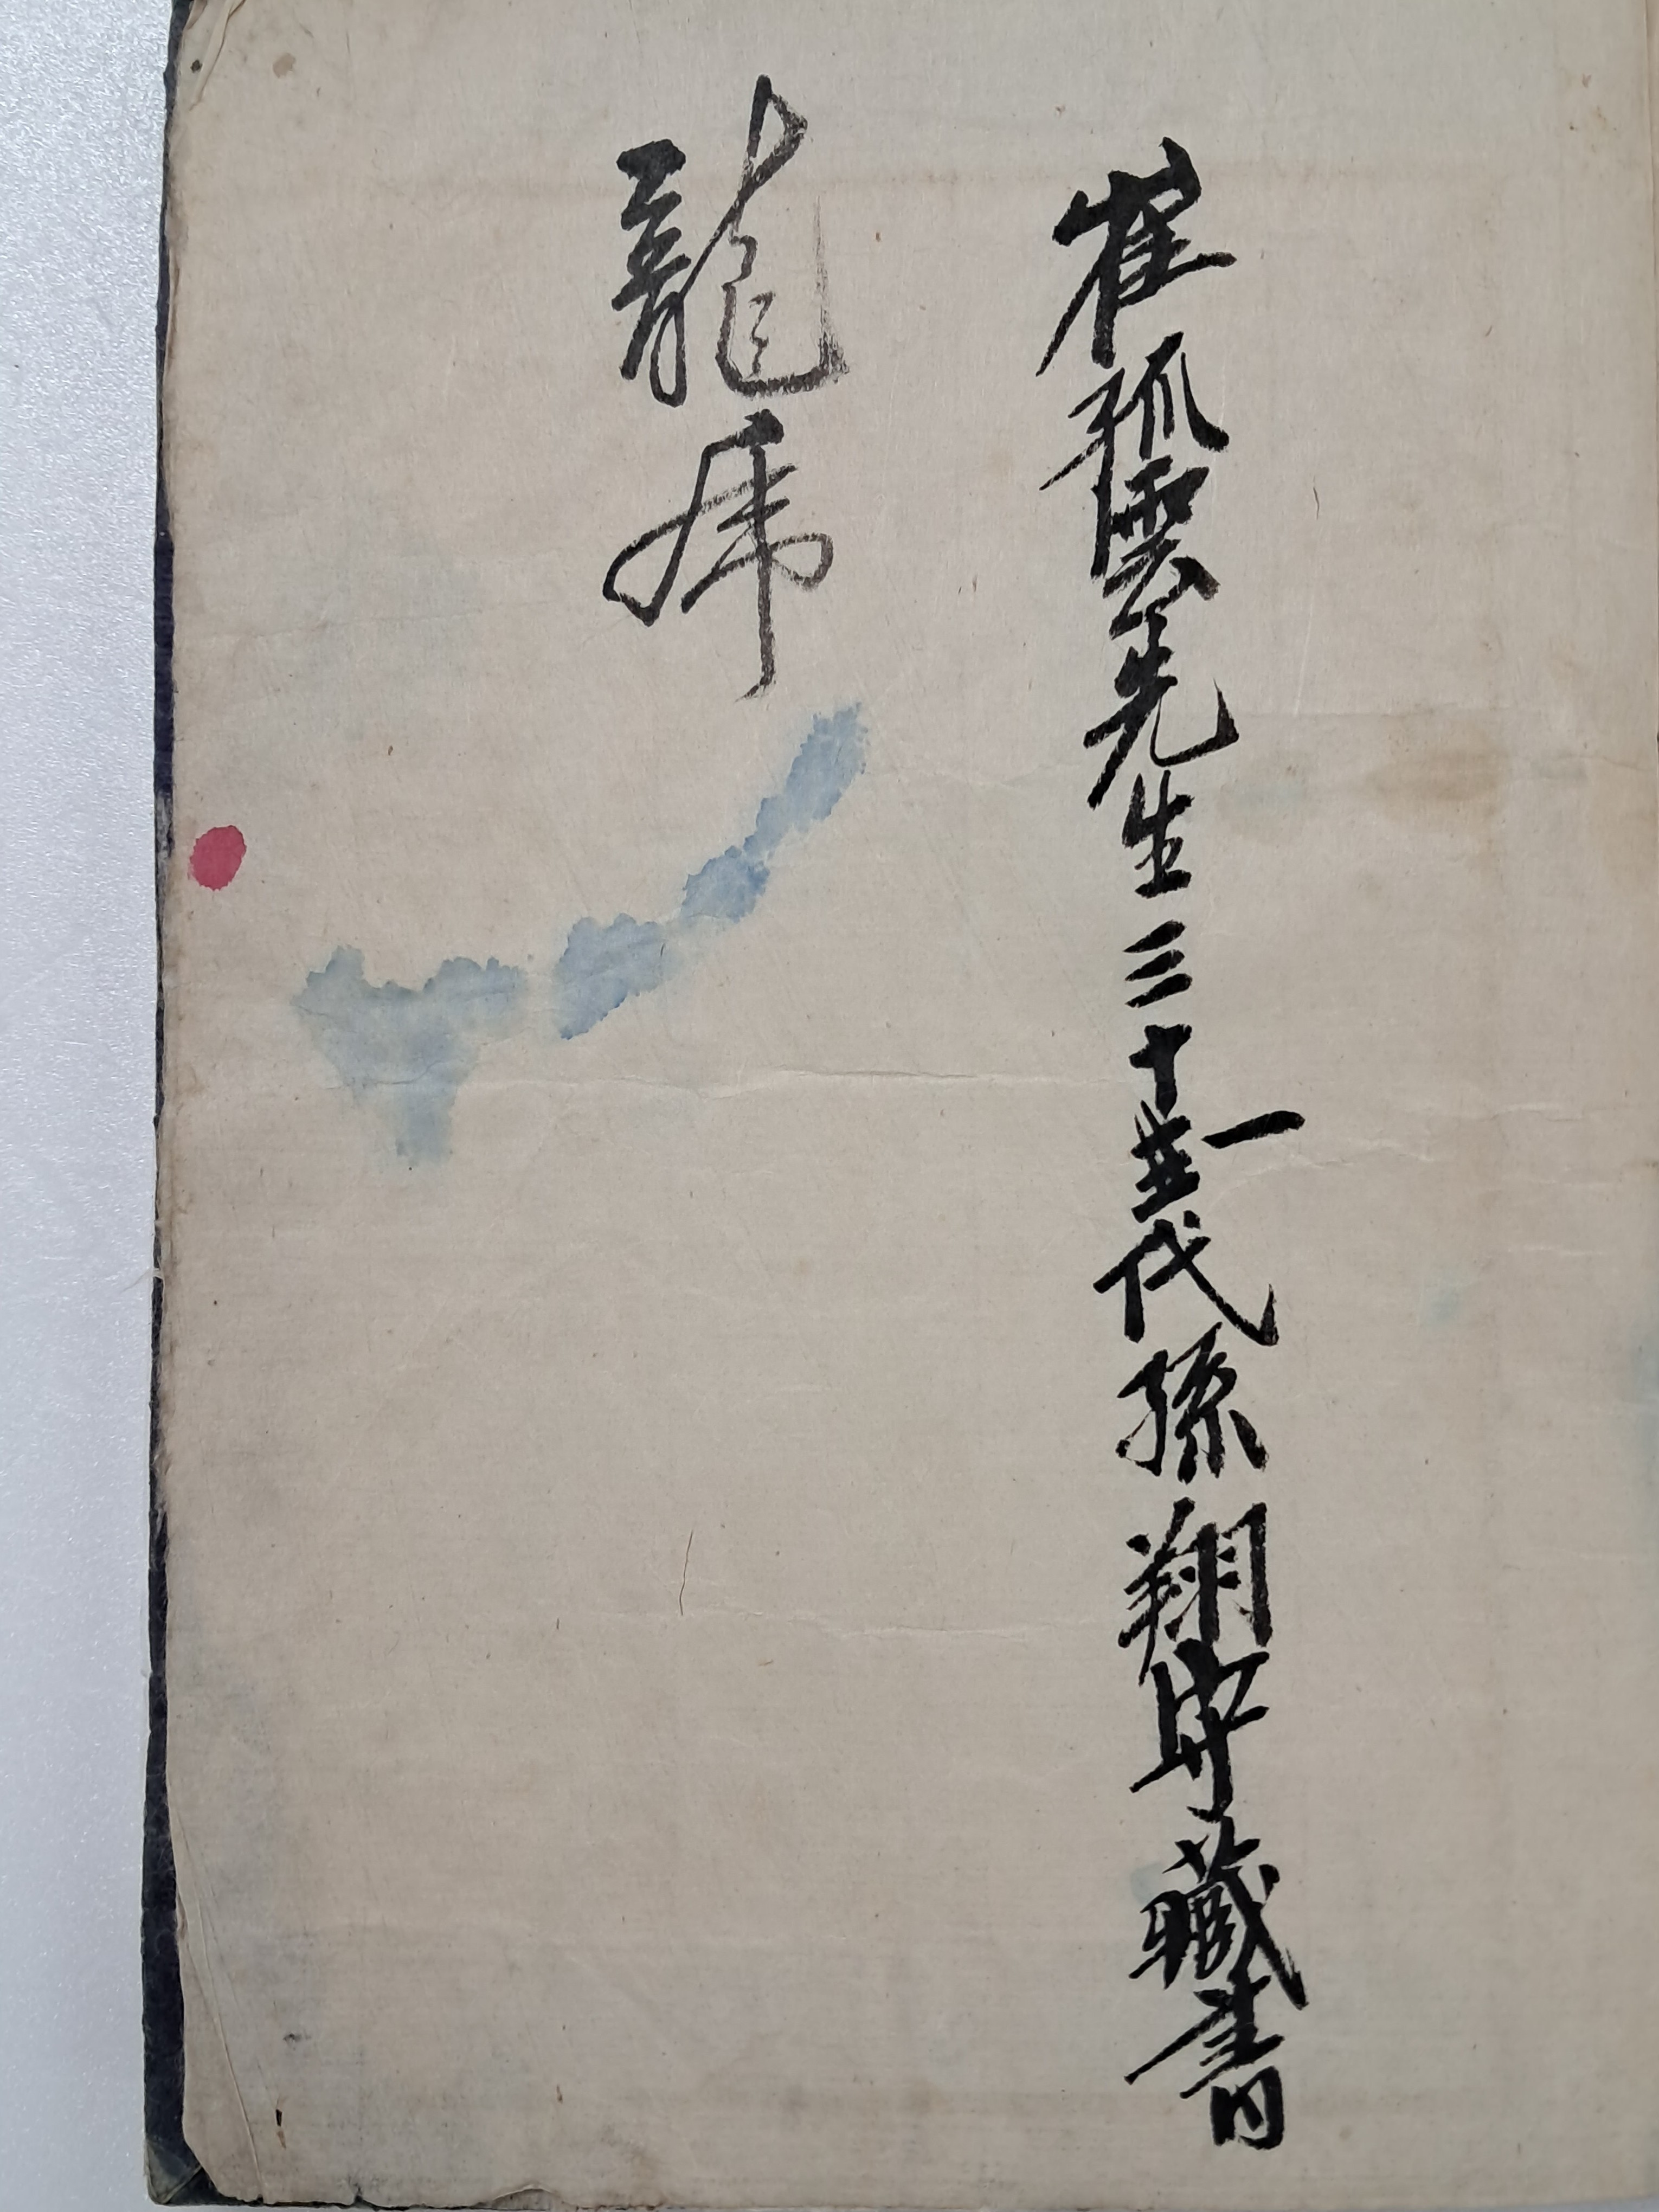 崔孤雲先生三十一代孫翔藏書
龍虎